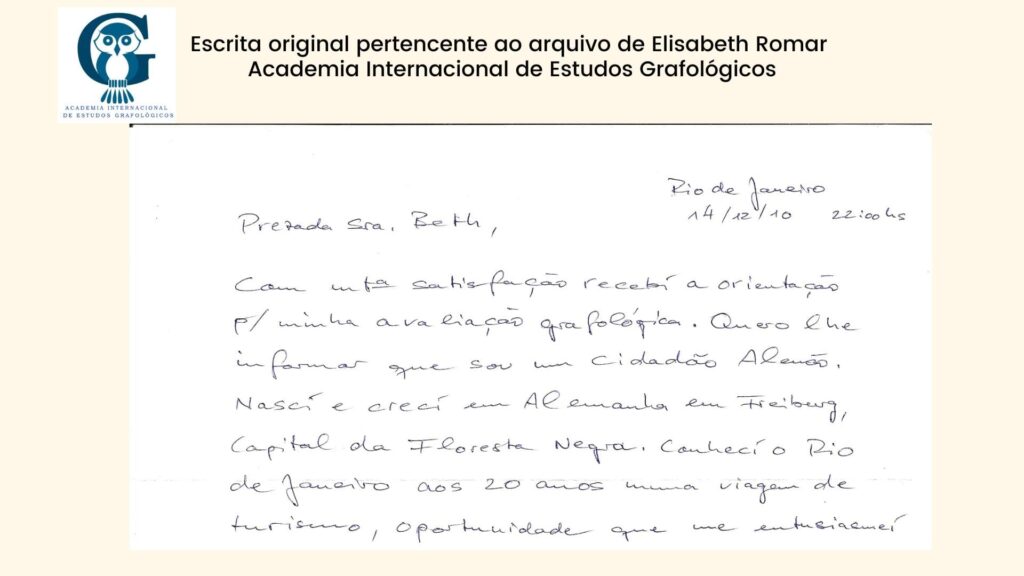 ACADEMIA INTERNACIONAL
DE ESTUDOS GRAFOLÓGICOS
Escrita original pertencente ao arquivo de Elisabeth Romar
Academia Internacional de Estudos Grafológicos
Rio de Janeiro
14/12/10 22:00hs
Prezada Sra. Beth,
Com mta satisfação recebí a orientação
p/ minha avaliação grafológica. Quero lhe
informar que sou um cidadão Alemão.
Nascí e crecí em Alemanha em Freiburg,
Capital da Floresta Negra. Conhecí o Rio
de Janeiro aos 20 anos numa viagem de
turismo, oportunidade que me entusiasmeí